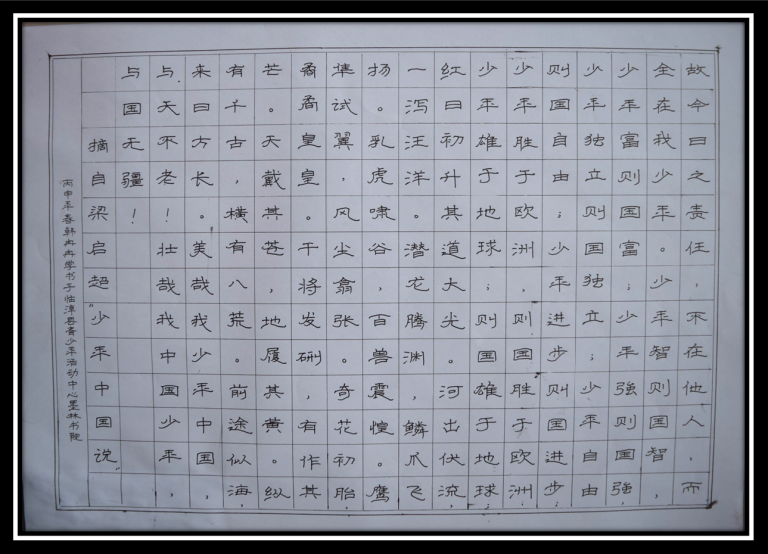 故今日之责任，不在他人，而
全在我少年。少年智则国智，
少年富则国富；少年強则国強，
少年独立则国独立；少年自由
则国自由；少年进步则国进步；
少年胜于欧洲，则国胜于欧洲；
少年雄于地球，则国雄于地球；
红日初升其道大光。河出伏流，
一泻汪洋潜龙腾渊，鳞爪飞
扬。乳虎啸谷，百兽震惶。鹰
隼试翼，风尘翕张。奇花初胎，
矞矞皇皇。干将发硎，有作其
芒。天戴其苍，地履其黄。纵
有千古，横有八荒。前途似海，
来日方长。美哉我少年中国，
与天不老！壮哉我中国少年，
与国无疆！
摘自梁启超“少年中国说”
丙申年春韩冉冉学书于临漳县青少年活动中心墨林书院